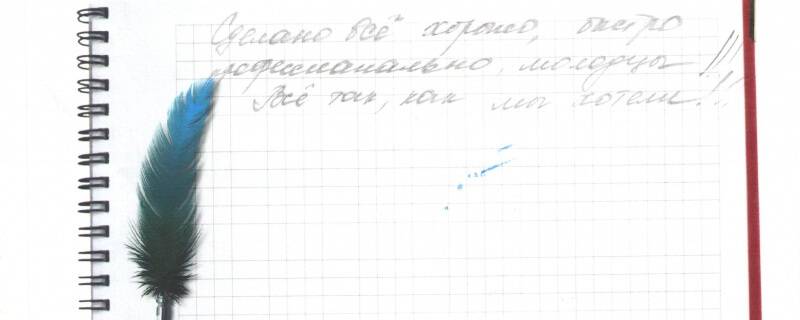 Сделано всё хорошо, быстро
професианально, молодцы!!!
Всё так, как мы хотели!!